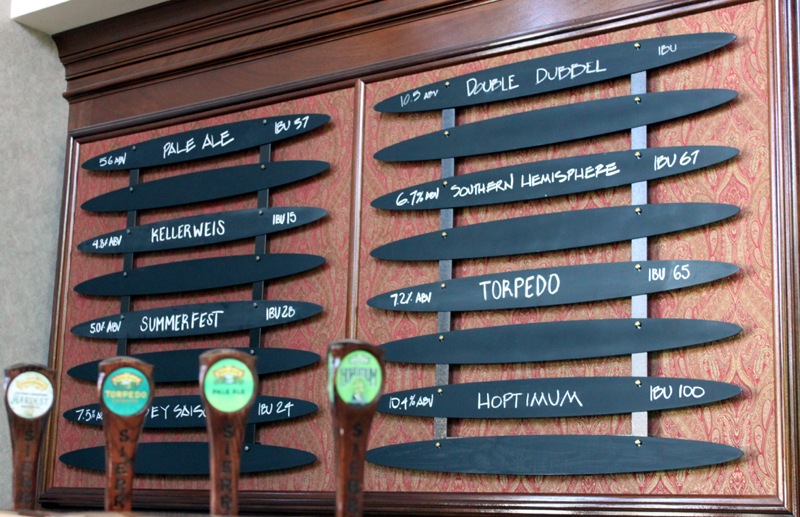 5.6 ABV PALE ALE IBU 37
4.8% ABV KELLERWEIS IBU 15
5.0% ABV SUMMERFEST IBU 28
7.5% EY SAIS IBU 24
10.5 ABV DOUBLE DUBBEL IBU
6.7% ABV SOUTHERN HEMISPHERE IBU 67
7.2% ABV TORPEDO IBU 65
10.4% ABV HOPTIMUM IBU 100
HARVEST
TORPEDO
SIERR
PALE ALE
SIERR
HOPTIMUM
SIERR